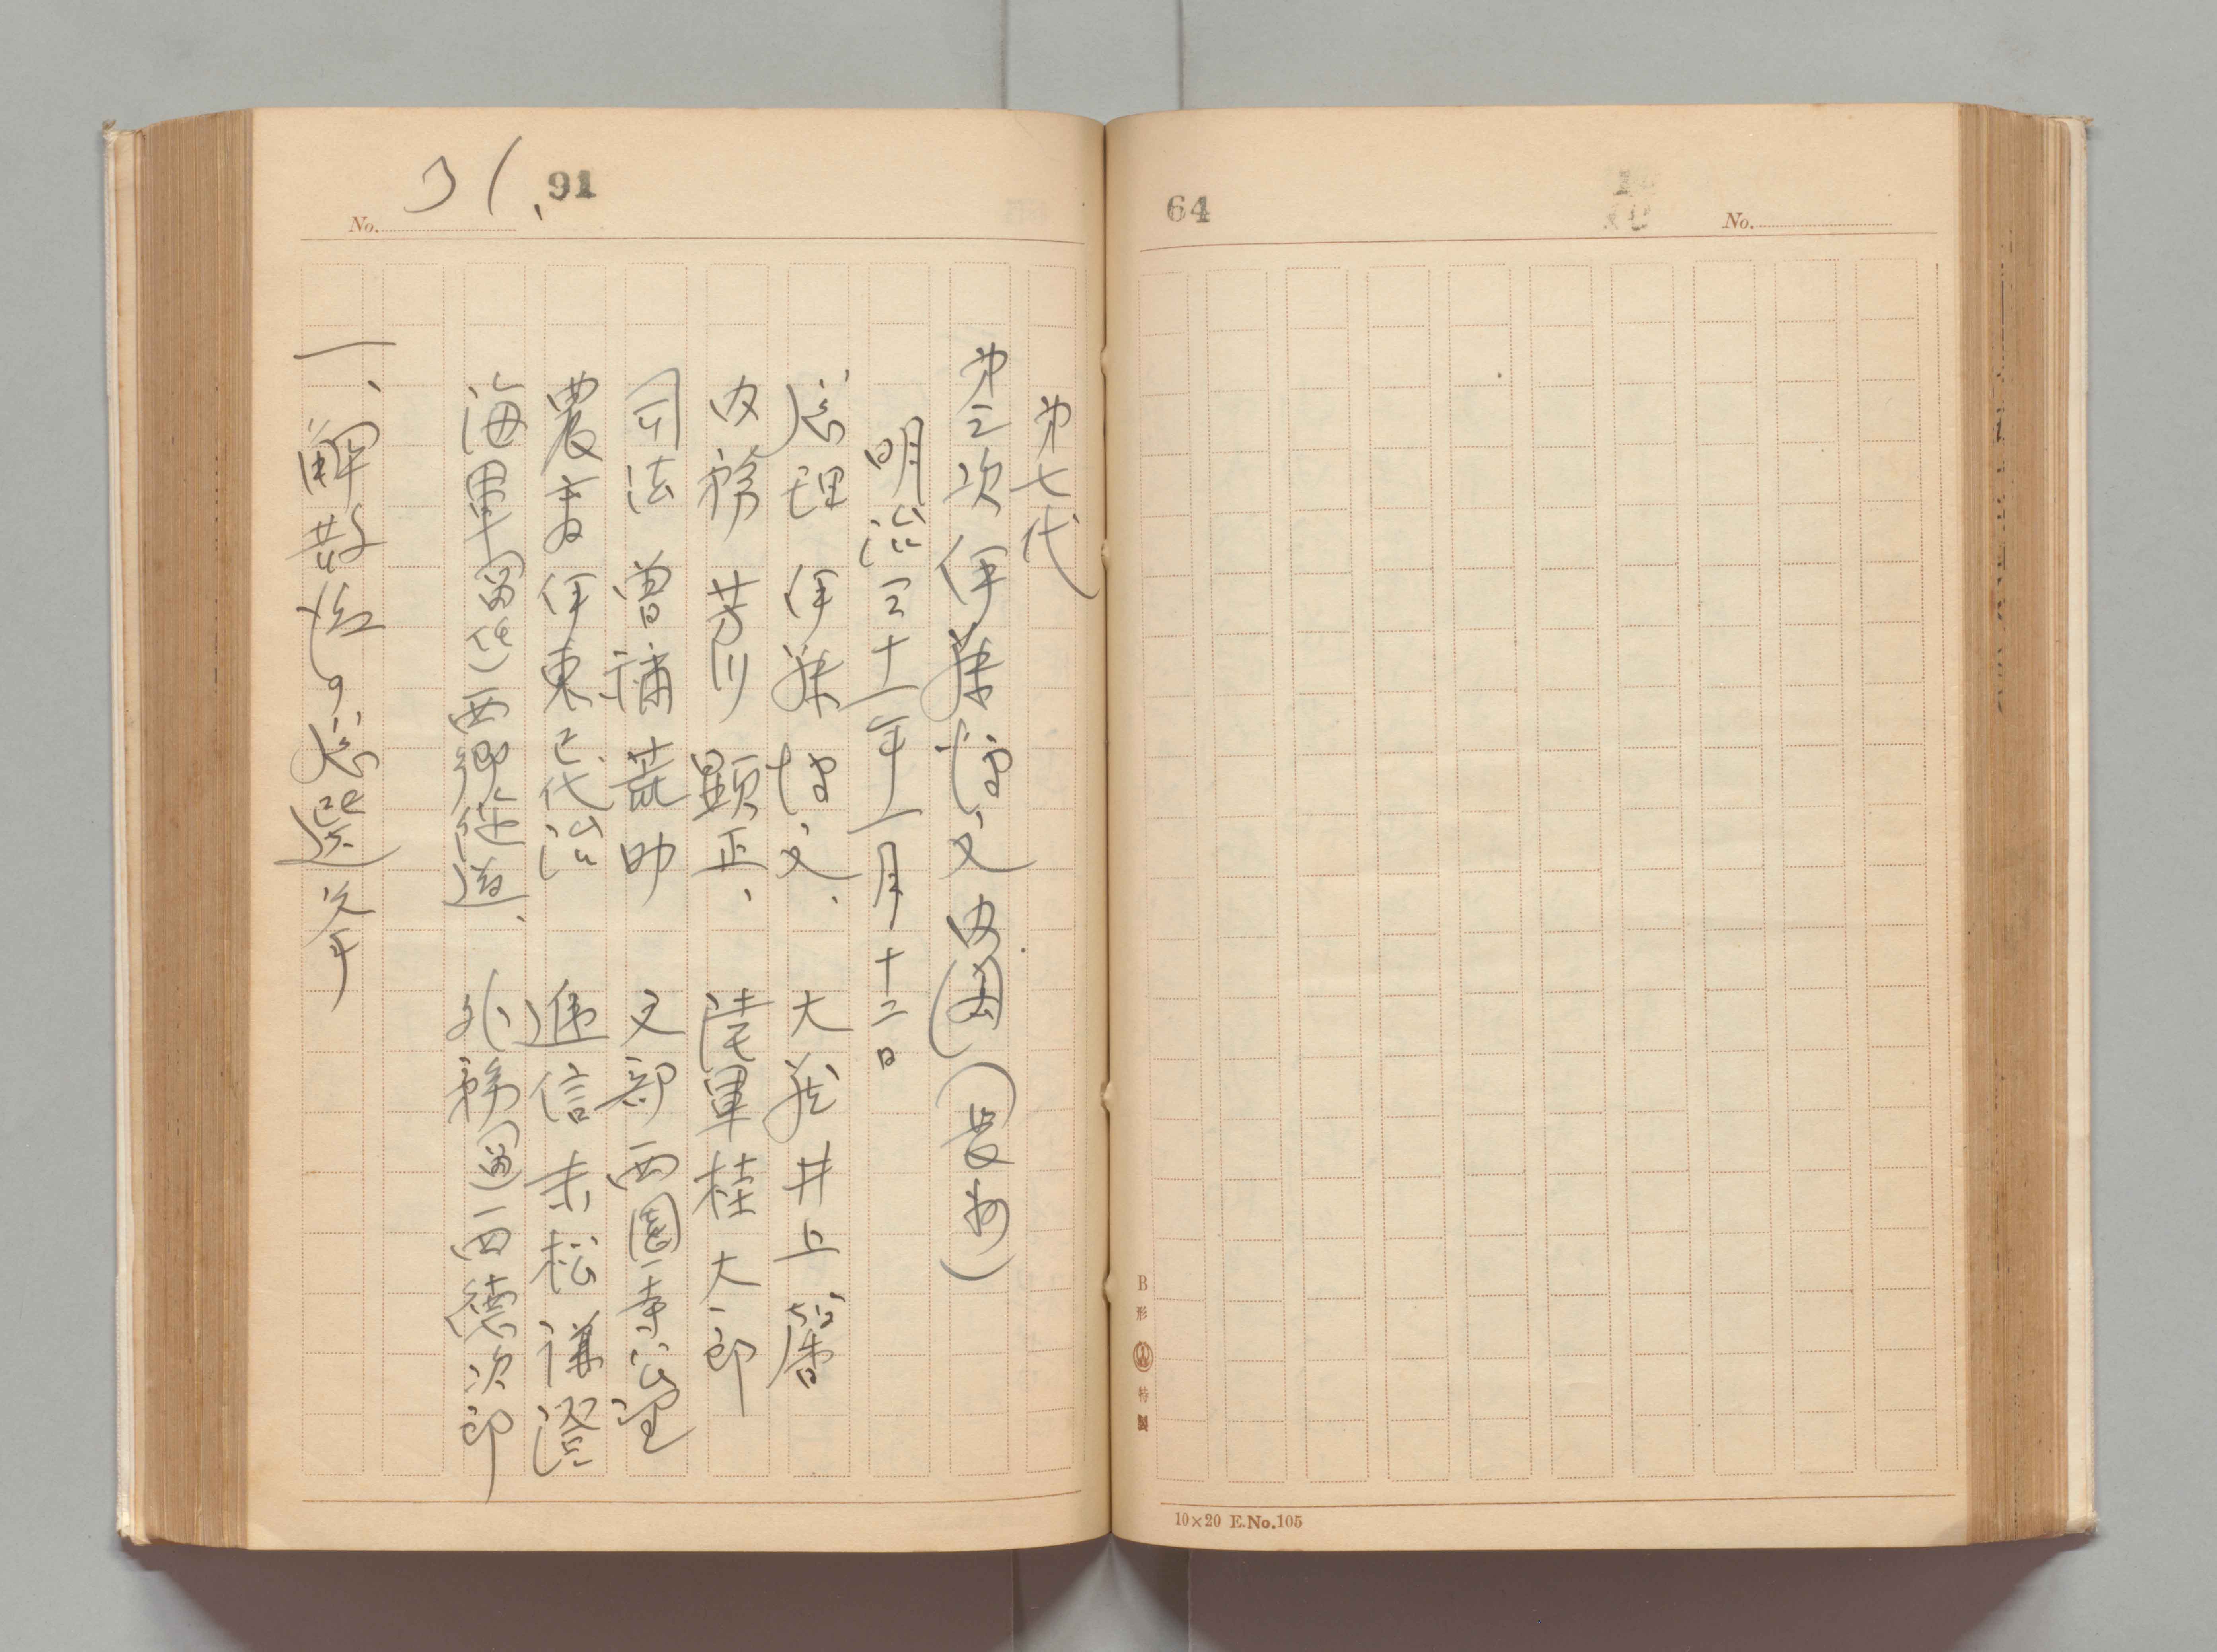 64
No.
B形 特製
10×20 E.No.105
31、
91
No.
第七代
第三次伊藤博文内閣（長州）
明治三十一年一月十二日
総理 伊藤博文、 大蔵 井上馨
内務 芳川顕正、 陸軍 桂太郎
司法 曽祢荒助 文部 西園寺公望
農商 伊東巳代治 逓信 末松謙澄
海軍（留任）西郷従道、 外務（留）西徳次郎
一、解散後の総選挙